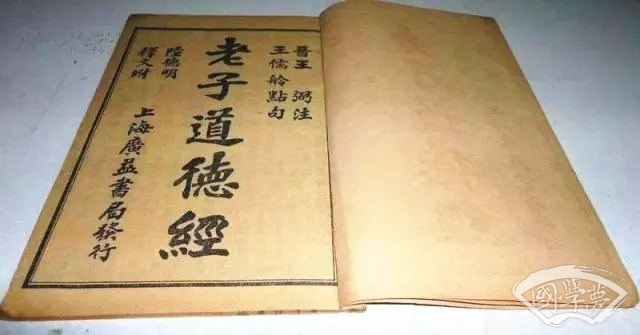 晋王 弼注
王儒舲點句
老子道德經
陸德明
釋文坿
上海廣益書局發行
國學夢